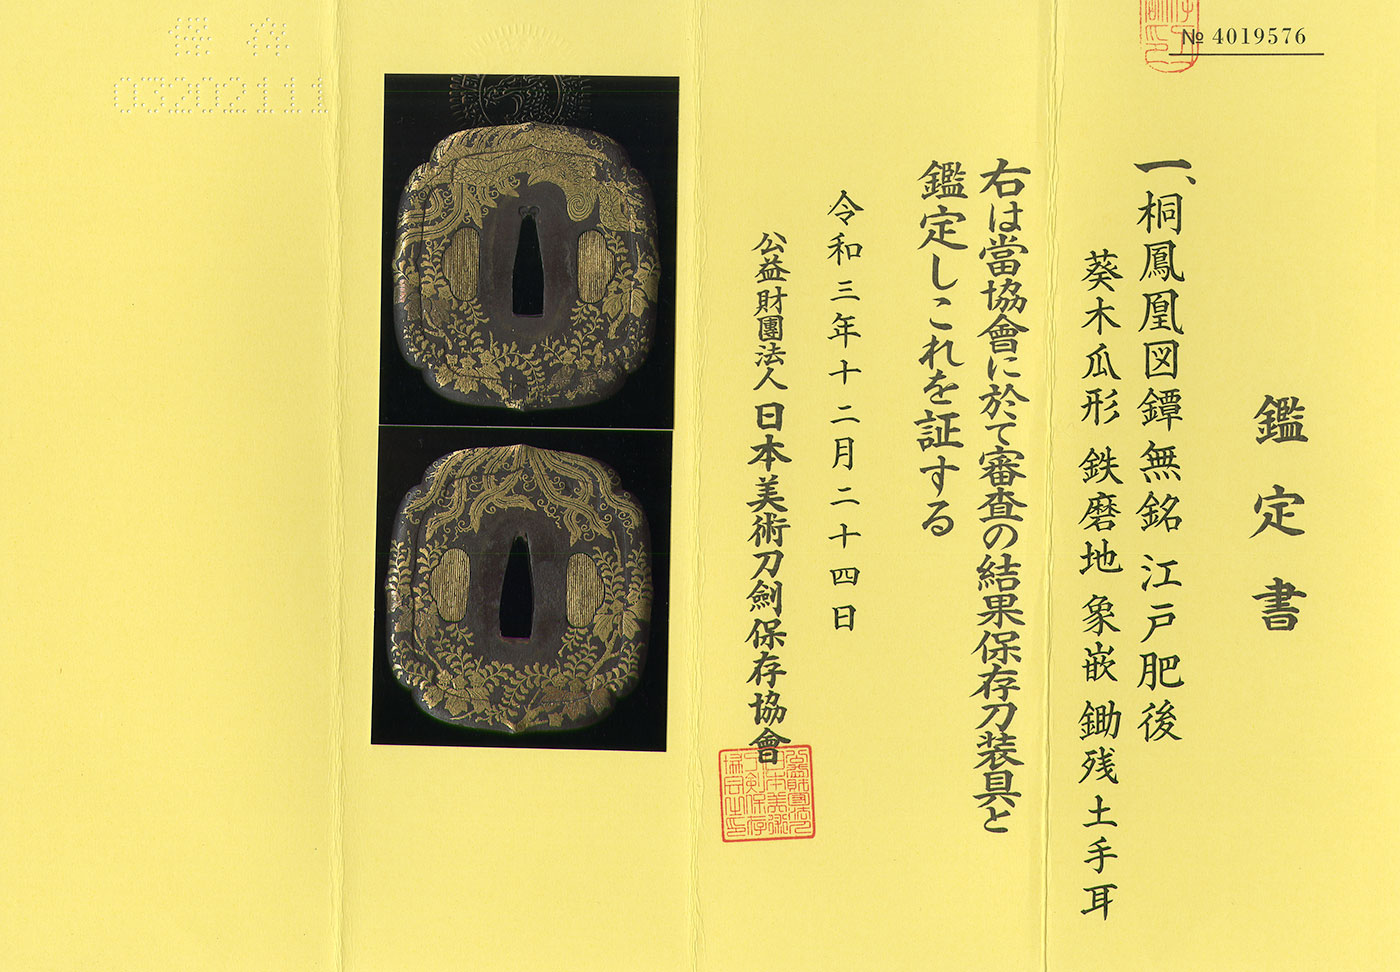 № 4019576
鑑定書
一、桐鳳凰図鐔 無銘 江戸肥後
葵木瓜形 鉄磨地 象嵌 鋤残土手耳
右は當協會に於て審査の結果保存刀装具と
鑑定しこれを証する
令和三年十二月二十四日
公益財團法人 日本美術刀劍保存協會
保存
03202111